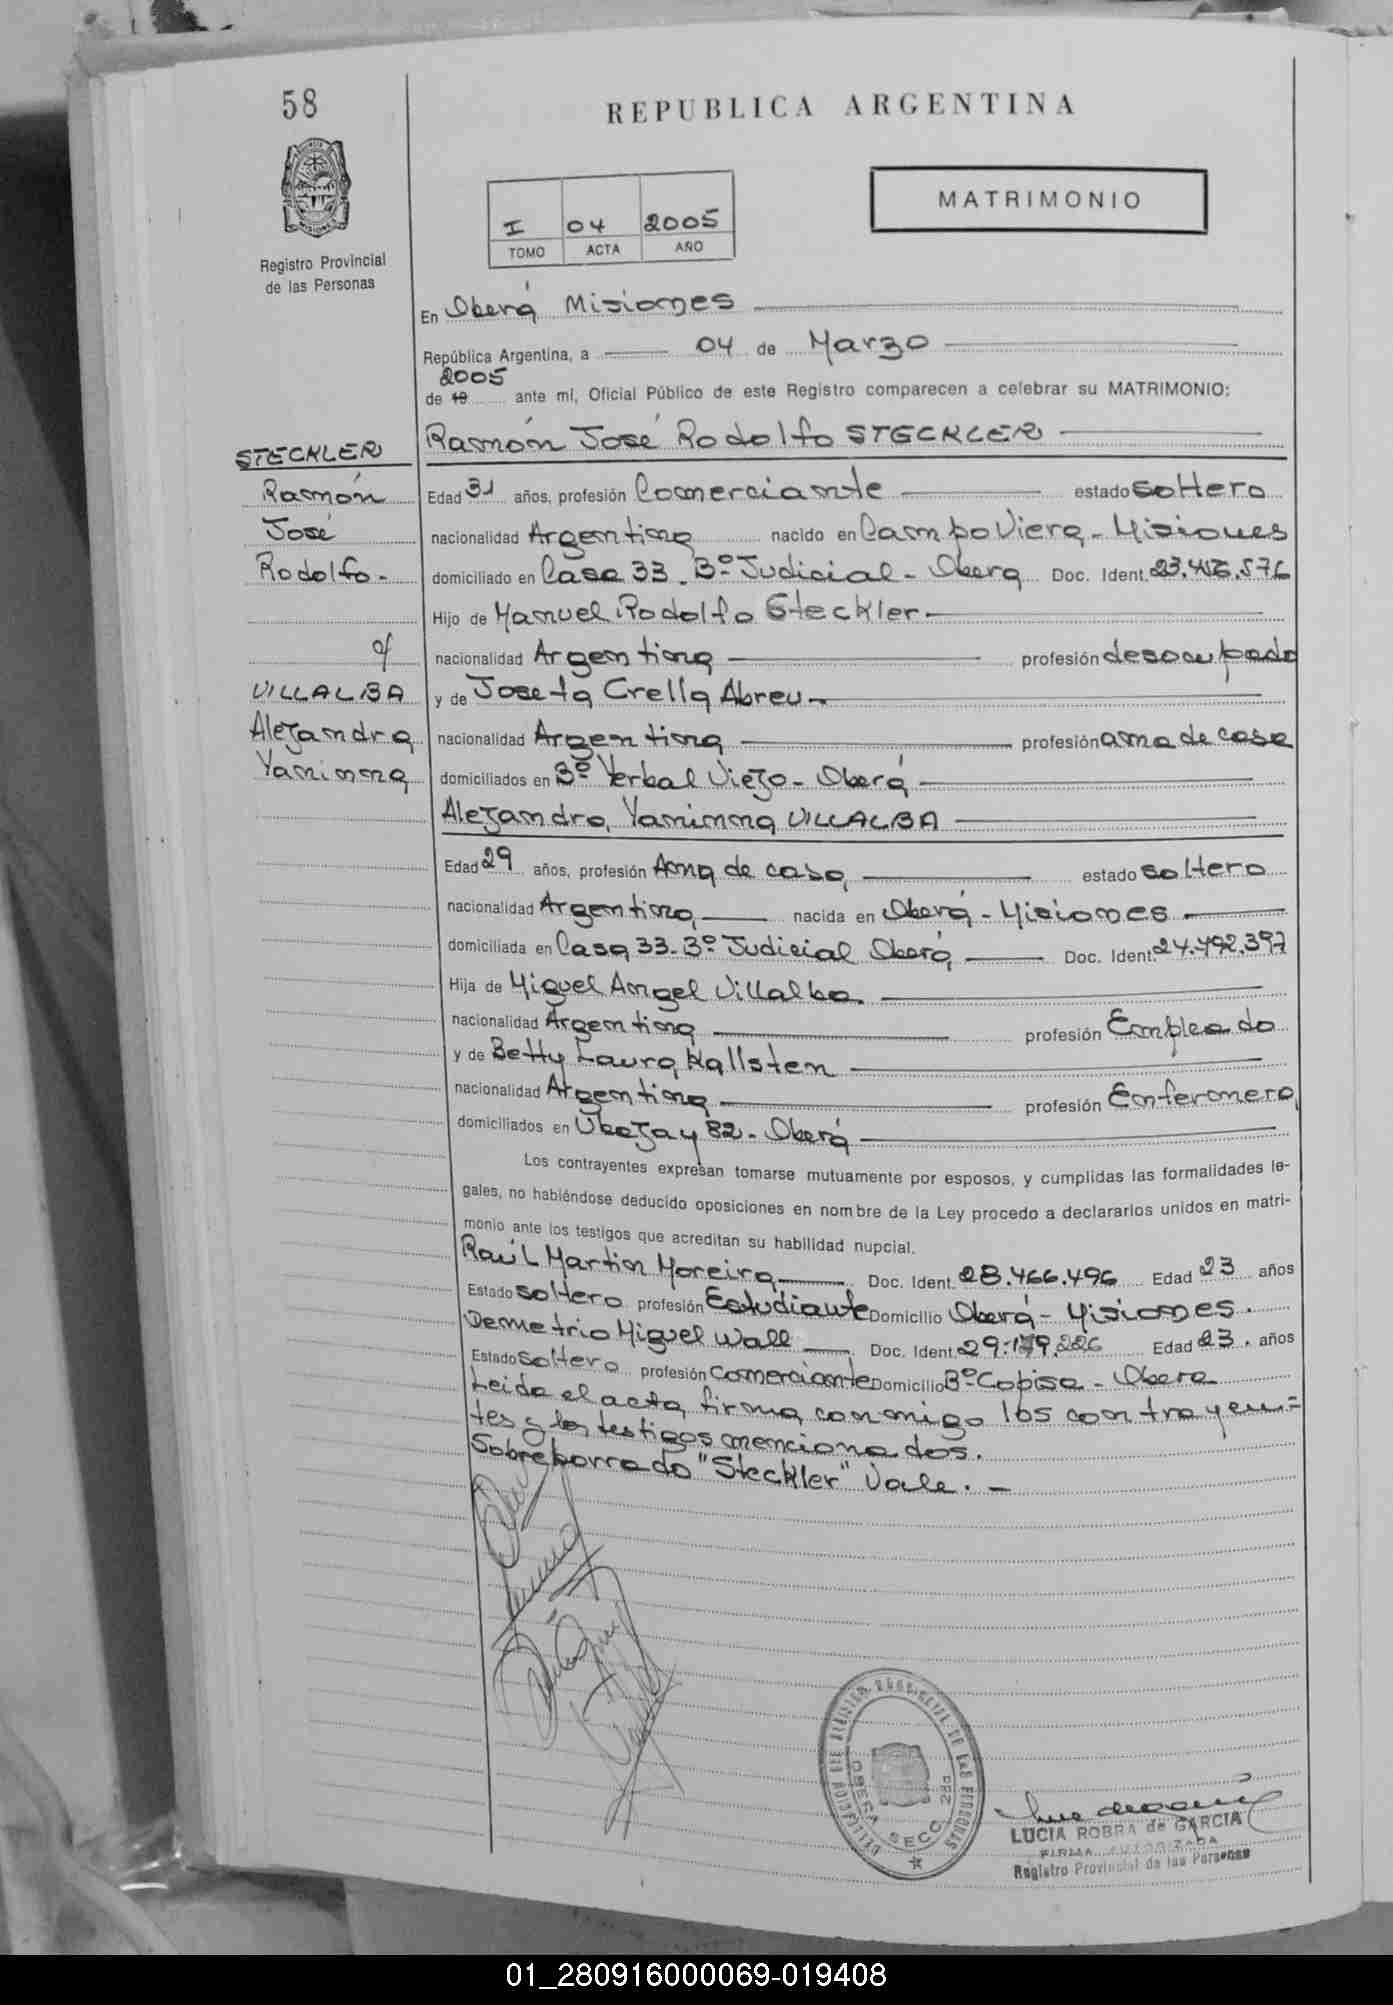 58
REPUBLICA ARGENTINA
MATRIMONIO
I 04 2005
TOMO ACTA AÑO
Registro Provincial
de las Personas
En Oberá Misiones
República Argentina, a 04 de Marzo
2005
de 19 ante mí, Oficial Público de este Registro comparecen a celebrar su MATRIMONIO:
STECKLER
Ramón
José
Rodolfo.-
VILLALBA
Alejandra
Yaninna
Ramón José Rodolfo STECKLER
Edad 31 años, profesión Comerciante estado soltero
nacionalidad Argentina nacido en Campo Viera - Misiones
domiciliado en Casa 33. Bº Judicial - Obera Doc. Ident.
Hijo de Manuel Rodolfo Steckler.
nacionalidad Argentina profesión desocupado
y de Josefa Abreu.
nacionalidad Argentina profesión ama de casa
domiciliados en Bº Yerbal Viejo - Oberá
Alejandra Yaninna VILLALBA
Edad 29 años, profesión Ama de casa estado soltera
nacionalidad Argentina nacida en Oberá - Misiones
domiciliada en Casa 33. Bº Judicial Oberá Doc. Ident. 24.492.397
Hija de Miguel Angel Villalba.
nacionalidad Argentina profesión Empleado
y de Betty Laura Kallsten
nacionalidad Argentina profesión Enfermera
domiciliados en 82 - Oberá
Los contrayentes expresan tomarse mutuamente por esposos, y cumplidas las formalidades le-
gales, no habiéndose deducido oposiciones en nombre de la Ley procedo a declararlos unidos en matri-
monio ante los testigos que acreditan su habilidad nupcial.
Raúl Martin Moreira Doc. Ident. 28.466.496 Edad 23 años
Estado soltero profesión Estudiante Domicilio Oberá - Misiones.
Demetrio Miguel Wall Doc. Ident. Edad 23. años
Estado soltero profesión Comerciante Domicilio Bº Copisa - Obera
Leida el acta, firma conmigo los contrayen=
tes y los testigos mencionados.
Sobreborrado "Steckler" Vale. -
DELEGACION DEL REGISTRO PROVINCIAL DE LAS PERSONAS
OBERA SECC 2da
LUCIA ROBRA de GARCIA
FIRMA AUTORIZADA
Registro Provincial de las Personas
01_280916000069-019408